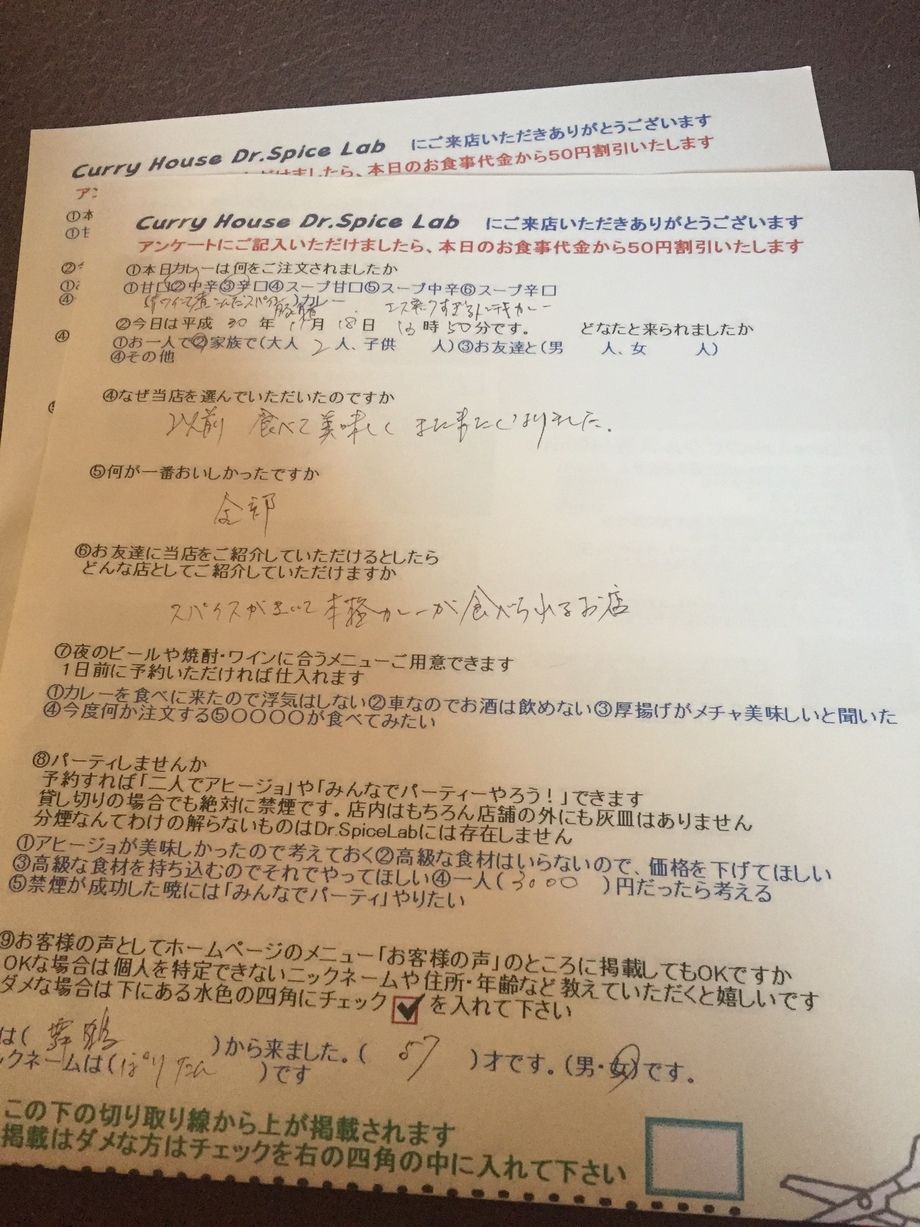 Curry House Dr.Spice Lab にご来店いただきありがとうございます
だけましたら、本日のお食事代金から50円割引いたします
Curry House Dr.Spice Lab にご来店いただきありがとうございます
アンケートにご記入いただけましたら、本日のお食事代金から50円割引いたします
①本日カレーは何をご注文されましたか
①甘口②中辛③辛口④スープ甘口⑤スープ中辛⑥スープ辛口
カレー
②今日は平成 30 年 11月 18日 時 50分です。 どなたと来られましたか
①お一人で②家族で(大人 2 人、子供 人)③お友達と(男 人、女 人)
④その他
④なぜ当店を選んでいただいたのですか
以前 食べて美味しく また来たくなりました。
⑤何が一番おいしかったですか
全部
⑥お友達に当店をご紹介していただけるとしたら
どんな店としてご紹介していただけますか
スパイスが 本格カレーが食べられるお店
⑦夜のビールや焼酎・ワインに合うメニューご用意できます
1日前に予約いただければ仕入れます
①カレーを食べに来たので浮気はしない②車なのでお酒は飲めない③厚揚げがメチャ美味しいと聞いた
④今度何か注文する⑤〇〇〇〇が食べてみたい
⑧パーティしませんか
予約すれば「二人でアヒージョ」や「みんなでパーティーやろう!」できます
貸し切りの場合でも絶対に禁煙です。店内はもちろん店舗の外にも灰皿はありません
分煙なんてわけの解らないものはDr.SpiceLabには存在しません
①アヒージョが美味しかったので考えておく②高級な食材はいらないので、価格を下げてほしい
③高級な食材を持ち込むのでそれでやってほしい④一人(3000 )円だったら考える
⑤禁煙が成功した暁には「みんなでパーティ」やりたい
⑨お客様の声としてホームページのメニュー「お客様の声」のところに掲載してもOKですか
OKな場合は個人を特定できないニックネームや住所・年齢など教えていただくと嬉しいです
ダメな場合は下にある水色の四角にチェック を入れて下さい
は(舞鶴 )から来ました。( 57 )才です。(男・女)です。
ックネームは(ぱりたん )です
この下の切り取り線から上が掲載されます
掲載はダメな方はチェックを右の四角の中に入れて下さい